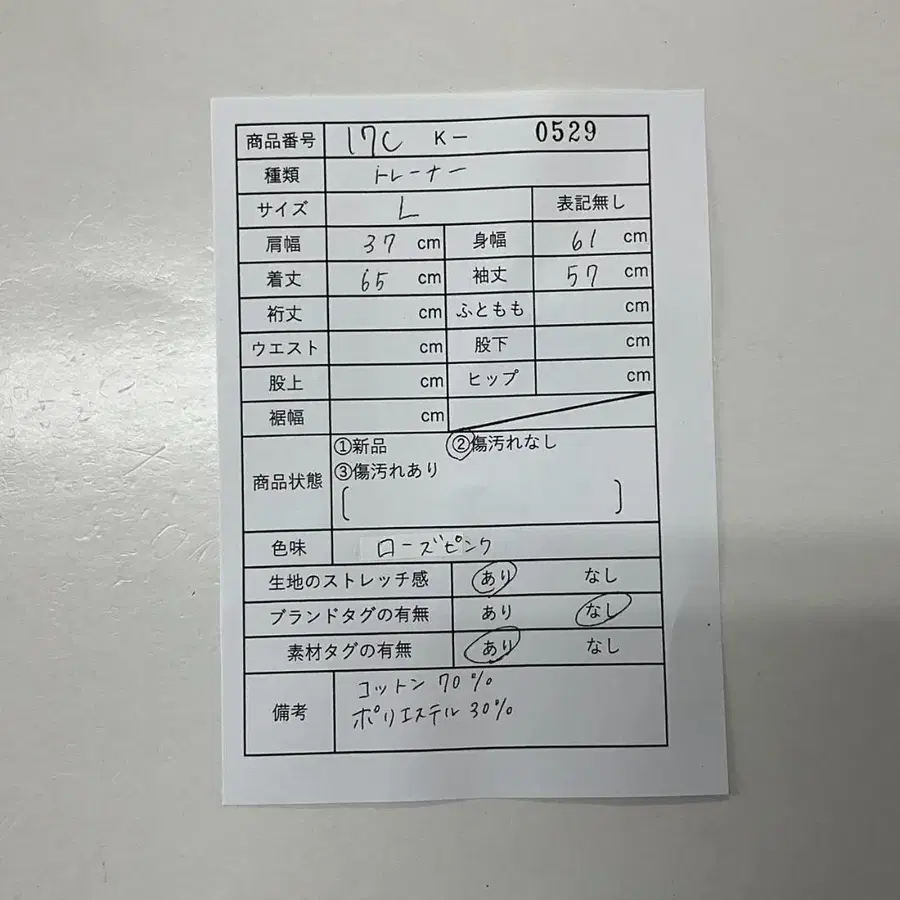 商品番号 17C K― 0529
種類 トレーナー
サイズ L 表記無し
肩幅 37 cm 身幅 61 cm
着丈 65 cm 袖丈 57 cm
裄丈 cm ふともも cm
ウエスト cm 股下 cm
股上 cm ヒップ cm
裾幅 cm
商品状態 ①新品 ②傷汚れなし
③傷汚れあり
[ ]
色味 ローズピンク
生地のストレッチ感 あり なし
ブランドタグの有無 あり なし
素材タグの有無 あり なし
備考 コットン 70%
ポリエステル 30%